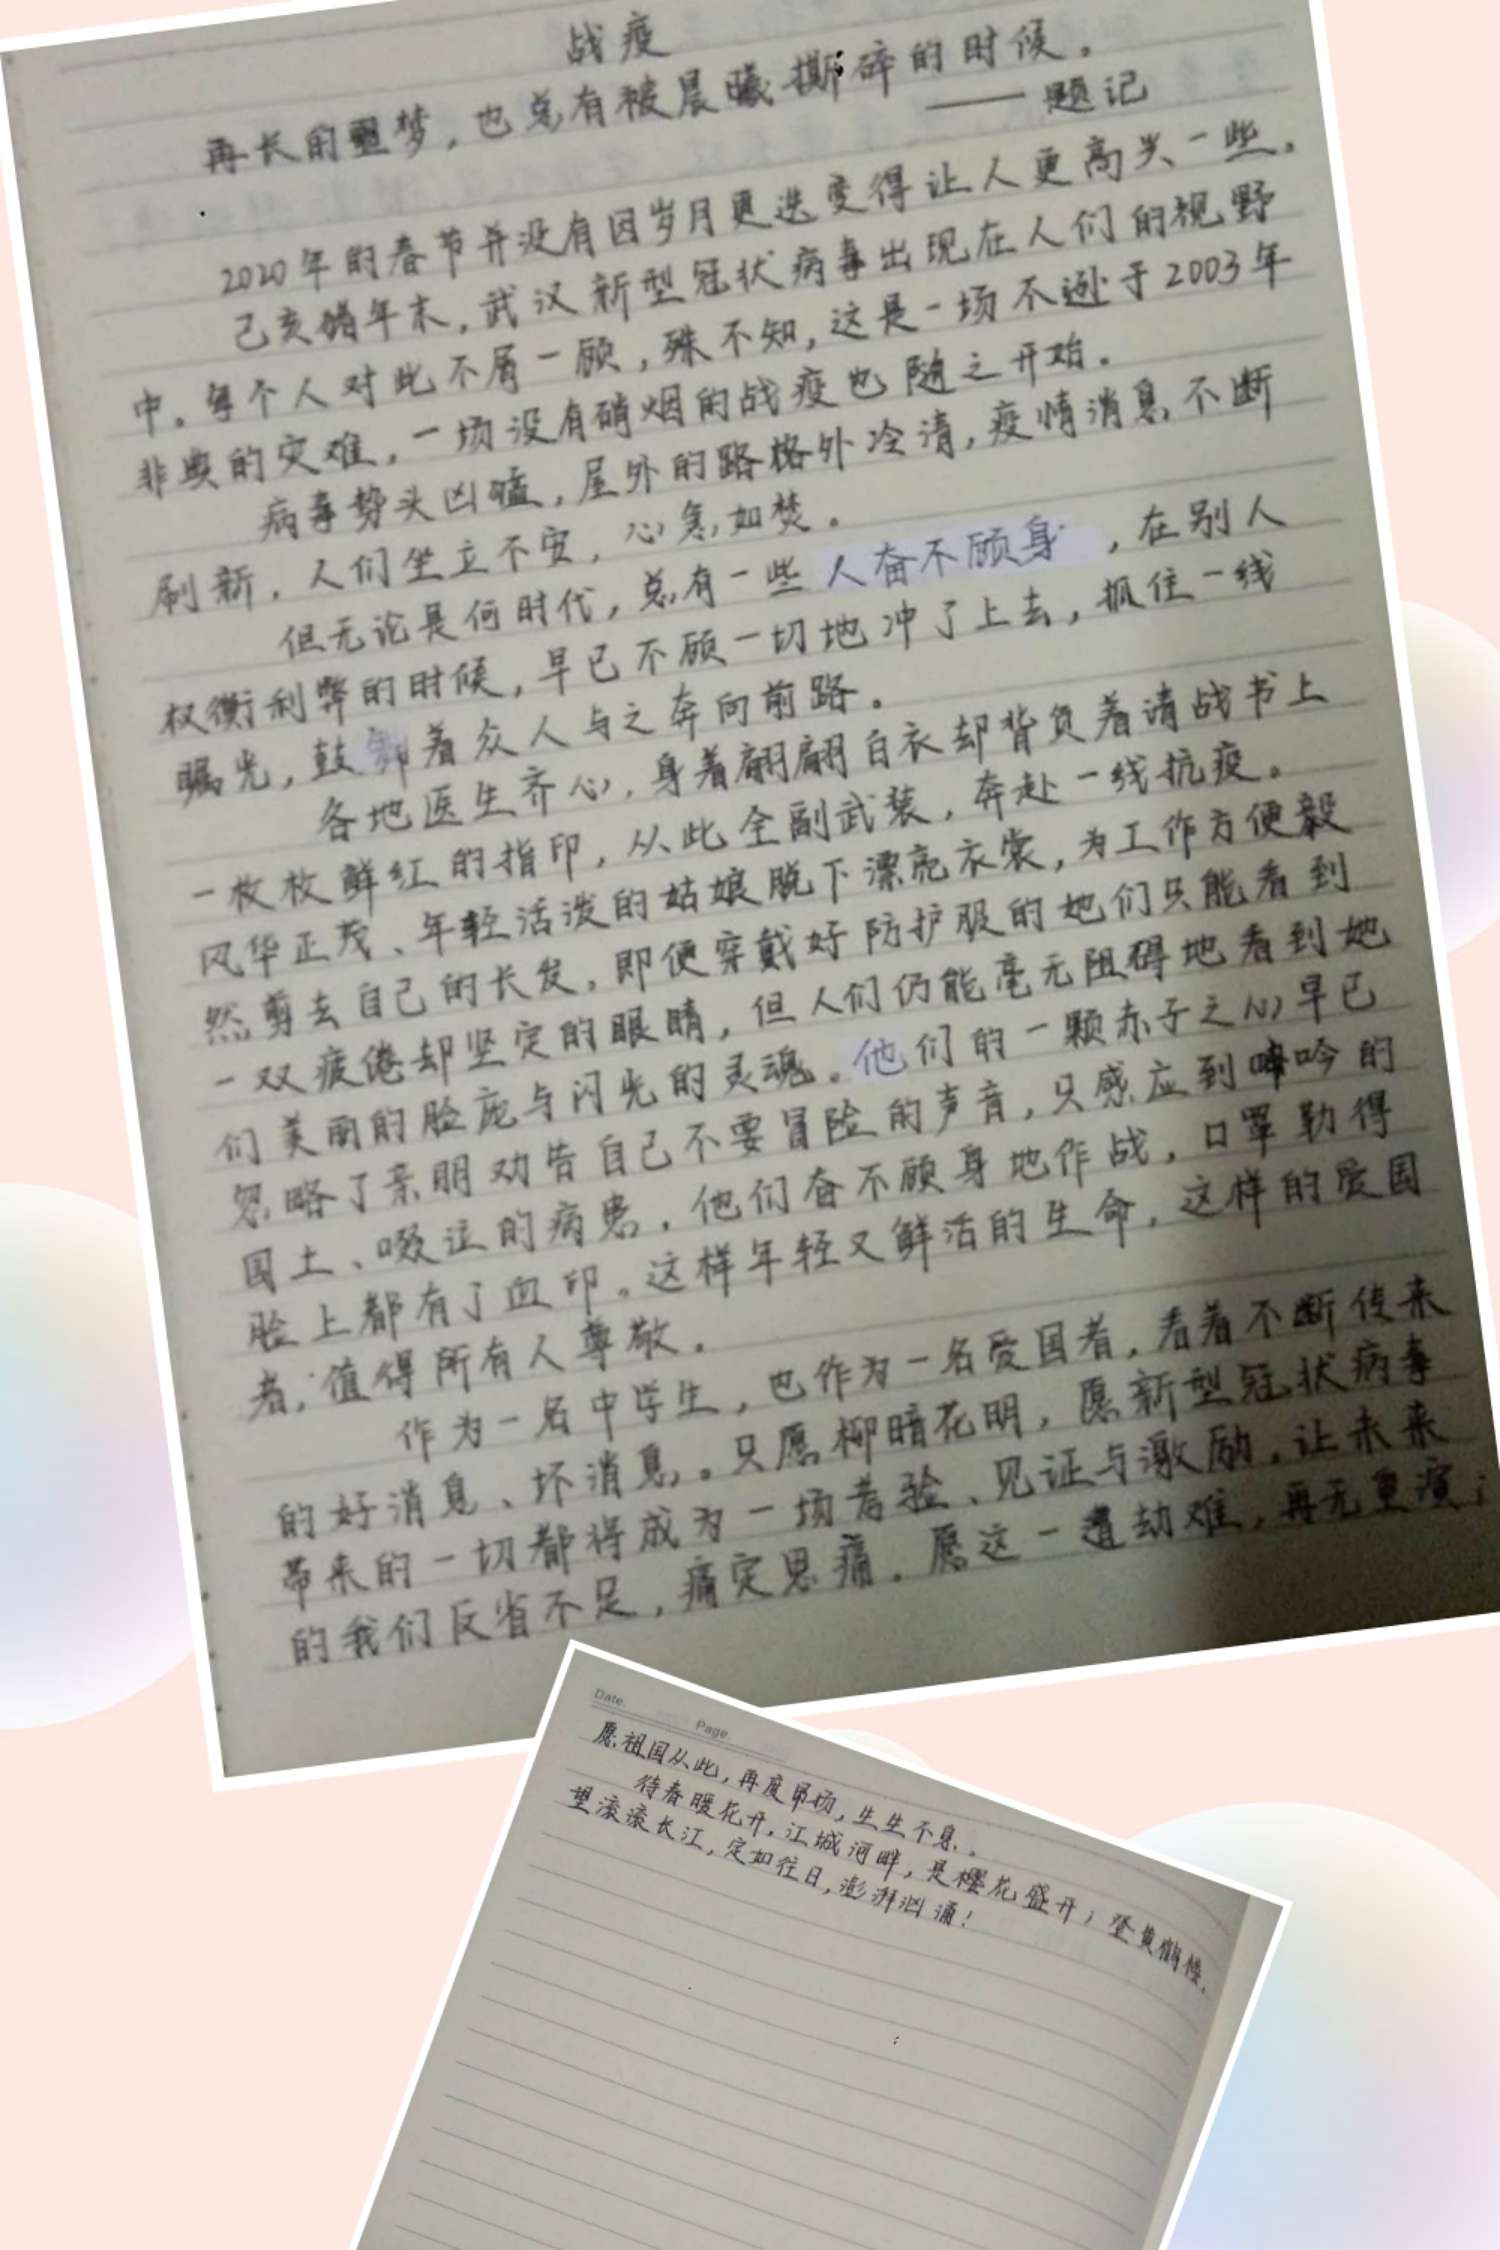 战疫
再长的噩梦，也总有被晨曦撕碎的时候。
——题记
2020年的春节并没有因岁月更迭变得让人更高兴一些。
己亥猪年末，武汉新型冠状病毒出现在人们的视野
中。每个人对此不屑一顾，殊不知，这是一场不逊于2003年
非典的灾难，一场没有硝烟的战疫也随之开始。
病毒势头凶嗑，屋外的路格外冷清，疫情消息不断
刷新，人们坐立不安，心急如焚。
但无论是何时代，总有一些人奋不顾身，在别人
权衡利弊的时候，早已不顾一切地冲了上去，抓住一线
曙光，鼓着众人与之奔向前路。
各地医生齐心，身着翩翩白衣却背负着请战书上
一枚枚鲜红的指印，从此全副武装，奔赴一线抗疫。
风华正茂、年轻活泼的姑娘脱下漂亮衣裳，为工作方便毅
然剪去自己的长发，即便穿戴好防护服的她们只能看到
一双疲倦却坚定的眼睛，但人们仍能毫无阻碍地看到她
们美丽的脸庞与闪光的灵魂。他们的一颗赤子之心早已
忽略了亲朋劝告自己不要冒险的声音，只感应到呻吟的
国土、啜泣的病患，他们奋不顾身地作战，口罩勒得
脸上都有了血印。这样年轻又鲜活的生命，这样的爱国
者，值得所有人尊敬。
作为一名中学生，也作为一名爱国者，看着不断传来
的好消息、坏消息。只愿柳暗花明，愿新型冠状病毒
带来的一切都将成为一场考验、见证与激励，让未来
的我们反省不足，痛定思痛。愿这一遭劫难，再无重演；
Date.
Page.
愿祖国从此，再度昂扬，生生不息。
待春暖花开，江城河畔，是樱花盛开；登黄鹤楼，
望滚滚长江，定如往日，澎湃汹涌！